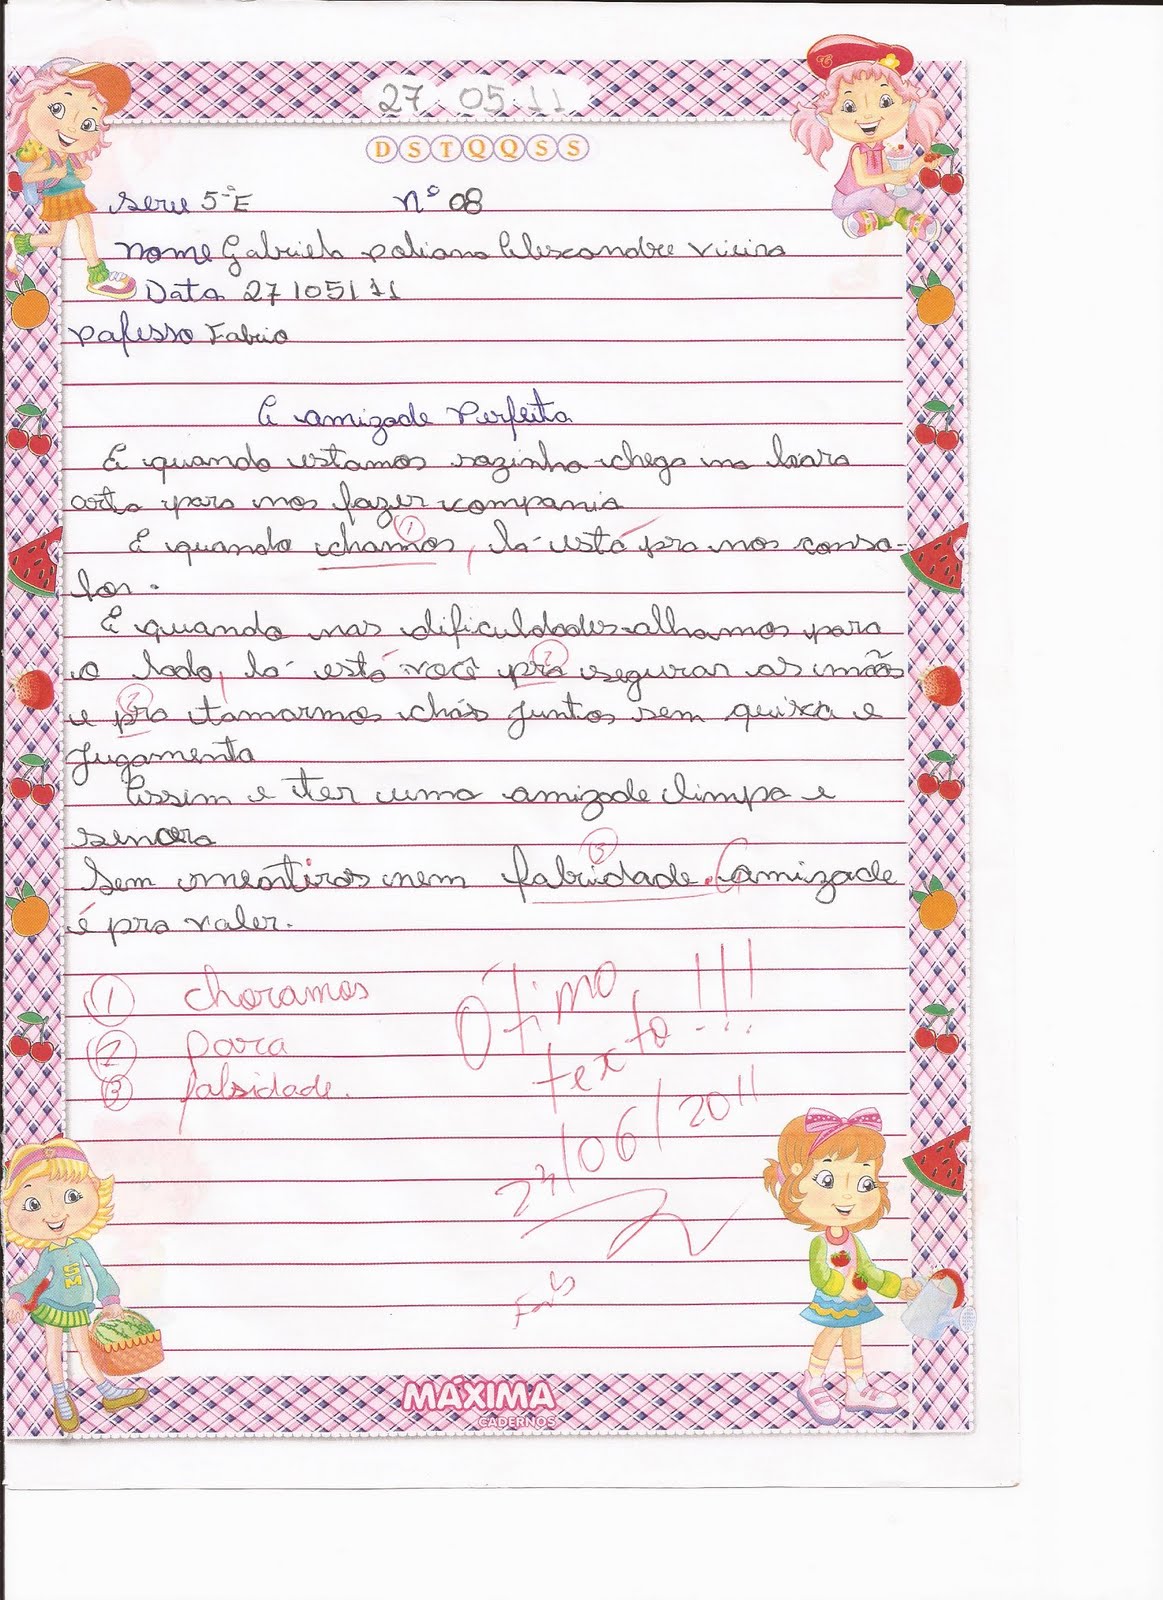 27 05 11
D S T Q Q S S
serie 5ºE nº 08
nome Gabriela poliana Alexandre Vieira
Data 27/05/11
Pafesso Fabio
A amizade Perfeita
E quando estamos sozinha chega na hora
certa para nos fazer compania
E quando chamos, lá está pra nos conso-
lar.
E quando nas dificuldades alhamos para
o lado, lá está você pra segurar as mãos
e pra tamarmos chás juntos sem queixa e
Jugamento
Assim e ter uma amizade limpa e
sincera
Sem mentiras nem fabridade. (amizade
é pra valer.
1 choramos
2 para
3 falsidade.
Ótimo texto !!!
/06/2011
MÁXIMA
CADERNOS
SM